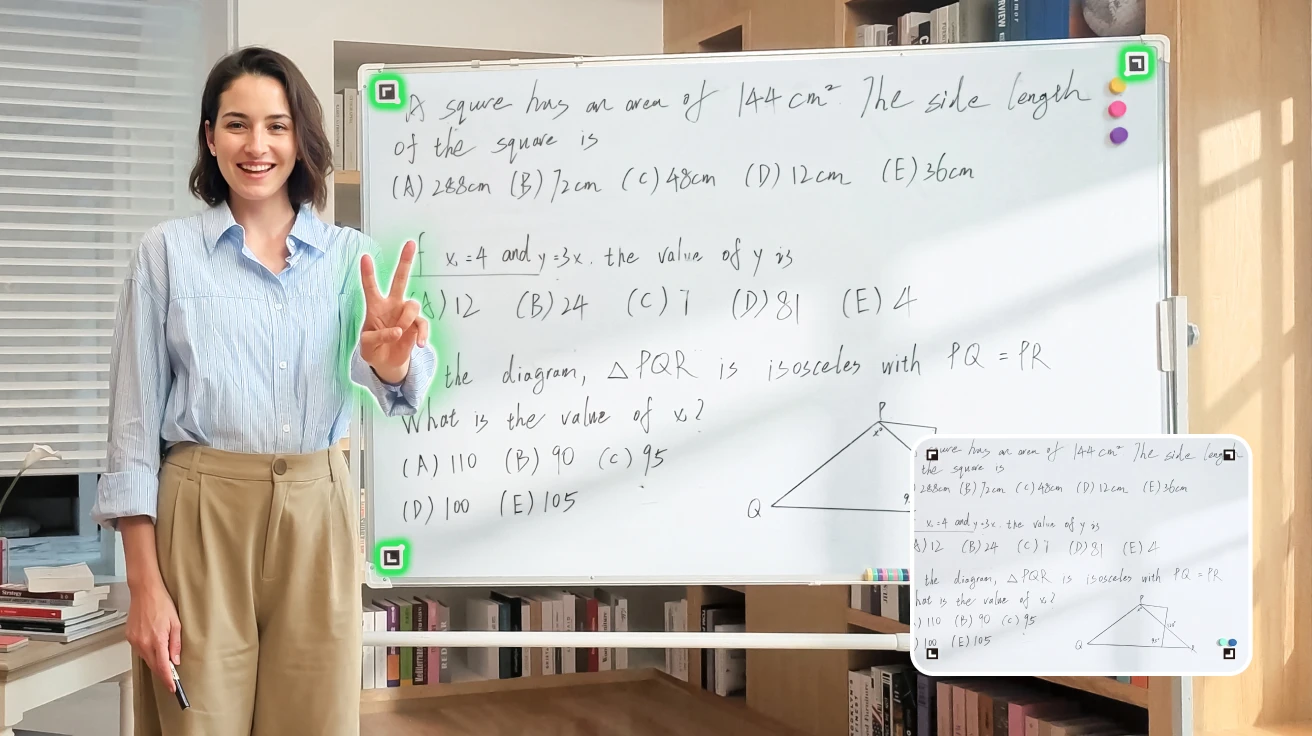 A squre has an area of 144 cm². The side length
of the square is
(A) 288cm (B) 72cm (C) 48cm (D) 12cm (E) 36cm
f x=4 and y=3x. the value of y is
A) 12 (B) 24 (C) 7 (D) 81 (E) 4
the diagram, △PQR is isosceles with PQ = PR
What is the value of x?
(A) 110 (B) 90 (C) 95
(D) 100 (E) 105
P
x°
Q
9
qure has an area of 144 cm² The side length
the square is
288cm (B) 72cm (C) 48cm (D) 12cm (E) 36cm
x=4 and y=3x. the value of y is
A) 12 (B) 24 (C) 7 (D) 81 (E) 4
the diagram, △PQR is isosceles with PQ = PR
hat is the value of x?
) 110 (B) 90 (C) 95
) 100 (E) 105
P
Q
Strategy